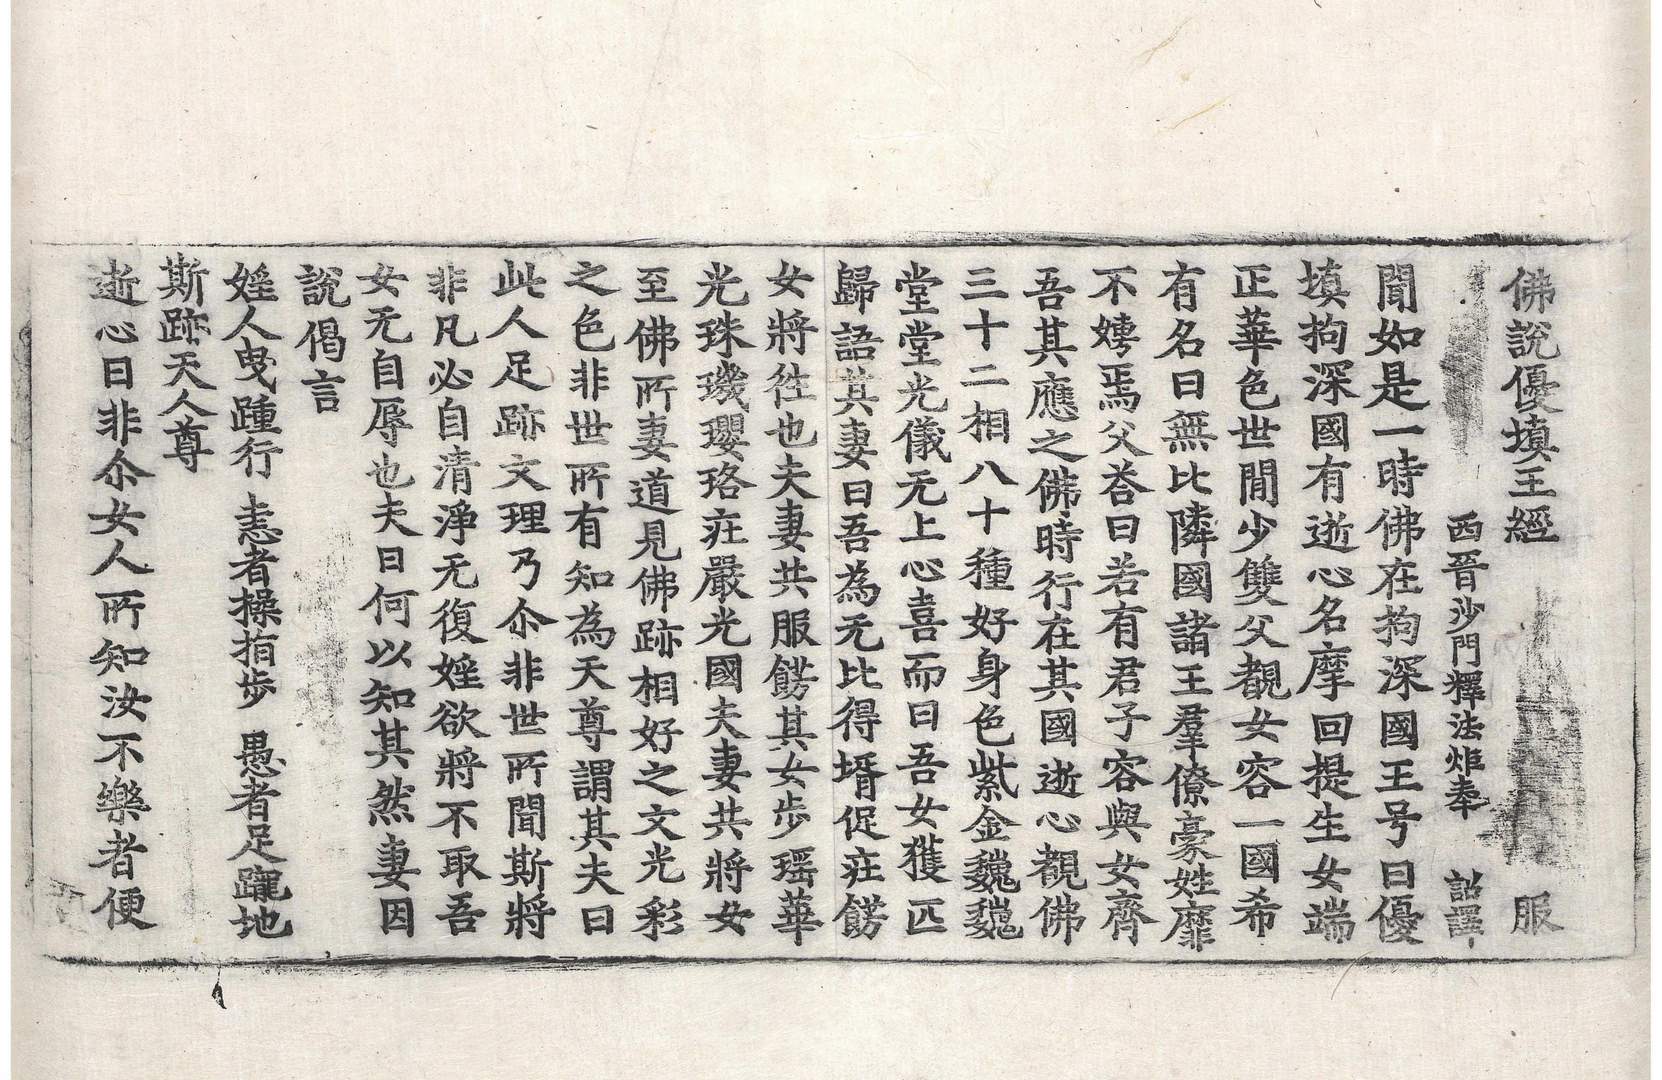 佛說優填王經 服
西晉沙門釋法炬奉 詔譯
聞如是一時佛在拘深國王号曰優
填拘深國有逝心名摩回提生女端
正華色世間少雙父覩女容一國希
有名曰無比隣國諸王羣僚豪姓靡
不娉焉父荅曰若有君子容與女齊
吾其應之佛時行在其國逝心覩佛
三十二相八十種好身色紫金巍巍
堂堂光儀无上心喜而曰吾女獲匹
歸語其妻曰吾為无比得壻促莊餝
女將徃也夫妻共服餝其女步瑶華
光珠璣瓔珞莊嚴光國夫妻共將女
至佛所妻道見佛跡相好之文光彩
之色非世所有知為天尊謂其夫曰
此人足跡文理乃尒非世所聞斯將
非凡必自清淨无復婬欲將不取吾
女无自辱也夫曰何以知其然妻因
說偈言
婬人曳踵行 恚者操指步 愚者足躘地
斯跡天人尊
逝心曰非尒女人所知汝不樂者便